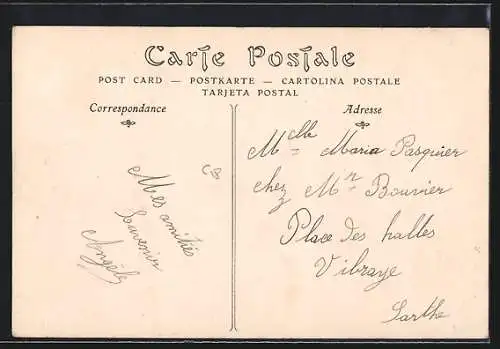 Carte Postale
POST CARD — POSTKARTE — CARTOLINA POSTALE
TARJETA POSTAL
Correspondance
Mes amitiés
Souvenir
Angèle
Adresse
Mlle Maria Pasquier
chez Mr Bouvier
Place des halles
Vibraye
Sarthe